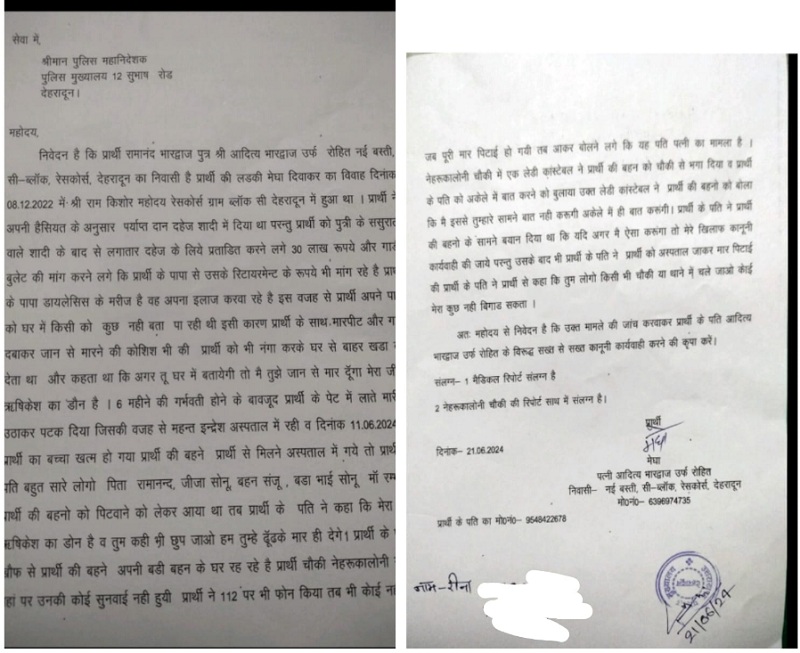 सेवा में,
श्रीमान पुलिस महानिदेशक
पुलिस मुख्यालय 12 सुभाष रोड
देहरादून।
महोदय,
निवेदन है कि प्रार्थी रामानंद भारद्वाज पुत्र श्री आदित्य भारद्वाज उर्फ रोहित नई बस्ती,
सी–ब्लॉक, रेसकोर्स, देहरादून का निवासी है प्रार्थी की लडकी मेघा दिवाकर का विवाह दिनांक
08.12.2022 में श्री राम किशोर महोदय रेसकोर्स ग्राम ब्लॉक सी देहरादून में हुआ था । प्रार्थी ने
अपनी हैसियत के अनुसार पर्याप्त दान दहेज शादी में दिया था परन्तु प्रार्थी को पुत्री के ससुराल
वाले शादी के बाद से लगातार दहेज के लिये प्रताडित करने लगे 30 लाख रूपये और
बुलेट की मांग करने लगे कि प्रार्थी के पापा से उसके रिटायरमेन्ट के रूपये भी मांग रहे है
के पापा डायलेसिस के मरीज है वह अपना इलाज करवा रहे है इस वजह से प्रार्थी अपने
को घर में किसी को कुछ नही बता पा रही थी इसी कारण प्रार्थी के साथ मारपीट और
दबाकर जान से मारने की कोशिश भी की प्रार्थी को भी नंगा करके घर से बाहर खडा
देता था और कहता था कि अगर तू घर में बतायेगी तो मै तुझे जान से मार दूँगा मेरा
ऋषिकेश का डौन है । 6 महीने की गर्भवती होने के बावजूद प्रार्थी के पेट में लाते
उठाकर पटक दिया जिसकी वजह से महन्त इन्द्रेश अस्पताल में रही व दिनांक 11.06.2024
प्रार्थी का बच्चा खत्म हो गया प्रार्थी की बहने प्रार्थी से मिलने अस्पताल में गये तो
पति बहुत सारे लोगो पिता रामानन्द, जीजा सोनू, बहन संजू, बडा भाई सोनू माँ
प्रार्थी की बहनो को पिटवाने को लेकर आया था तब प्रार्थी के पति ने कहा कि मेरा
ऋषिकेश का डॉन है व तुम कही भी छुप जाओ हम तुम्हे ढूंढके मार ही देगे। प्रार्थी के
खौफ से प्रार्थी की बहने अपनी बडी बहन के घर रह रहे है प्रार्थी चौकी नेहरूकालोनी
वहां पर उनकी कोई सुनवाई नही हुयी प्रार्थी ने 112 पर भी फोन किया तब भी कोई
जब पूरी मार पिटाई हो गयी तब आकर बोलने लगे कि यह पति पत्नी का मामला है ।
नेहरूकालोनी चौकी में एक लेडी कांस्टेबल ने प्रार्थी की बहन को चौकी से भगा दिया व प्रार्थी
के पति को अकेले में बात करने को बुलाया उक्त लेडी कांस्टेबल ने प्रार्थी की बहनो को बोला
कि मै इससे तुम्हारे सामने बात नही करूगी अकेले में ही बात करूंगी। प्रार्थी के पति ने प्रार्थी
की बहनो के सामने बयान दिया था कि यदि अगर मै ऐसा करूंगा तो मेरे खिलाफ कानूनी
कार्यवाही की जाये परन्तु उसके बाद भी प्रार्थी के पति ने प्रार्थी को अस्पताल जाकर मार पिटाई
की प्रार्थी के पति ने प्रार्थी से कहा कि तुम लोगो किसी भी चौकी या थाने में चले जाओ कोई
मेरा कुछ नही बिगाड सकता ।
अतः महोदय से निवेदन है कि उक्त मामले की जांच करवाकर प्रार्थी के पति आदित्य
भारद्वाज उर्फ रोहित के विरूद्ध सख्त से सख्त कानूनी कार्यवाही करने की कृपा करें।
संलग्न– 1 मैडिकल रिपोर्ट संलग्न है
2 नेहरूकालोनी चौकी की रिपोर्ट साथ में संलग्न है।
प्रार्थी
मेघा
दिनांक– 21.06.2024
मेघा
पत्नी आदित्य भारद्वाज उर्फ रोहित
निवासी– नई बस्ती, सी–ब्लॉक, रेसकोर्स, देहरादून
मो0नं0– 6396974735
प्रार्थी के पति का मो0नं0– 9548422678
नाम–रीना
21/06/24